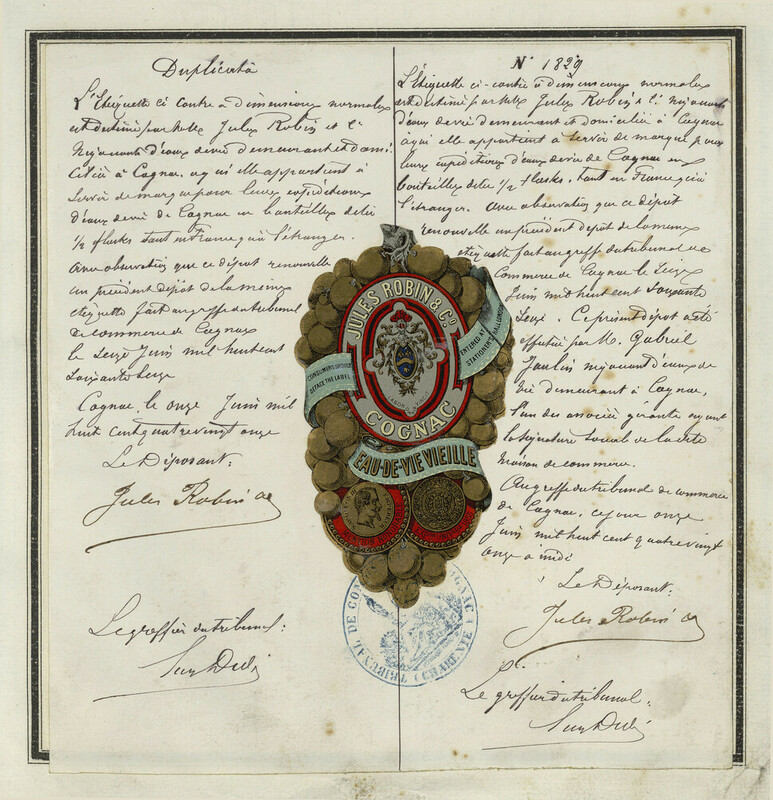 Duplicata
L'Etiquette ci contre a dimensions normales
est destinée par M.M. Jules Robin et Cie
Négociants d'eaux de vie demeurant et domi
ciliés à Cognac, à qui elle appartient à
servir de marque pour leurs expéditions
d'eaux de vie de Cognac en bouteilles dites
1/2 flasks tant en France qu'à l'étranger.
Avec observation que ce dépôt renouvelle
un précédent dépôt de la même
étiquette fait au greffe du tribunal
de commerce de Cognac
le seize Juin mil huit cent
soixante seize
Cognac, le onze Juin mil
huit cent quatre vingt onze
Le Déposant:
Jules Robin & Cie
Le greffier du tribunal:
N° 1829
L'Etiquette ci-contre à dimensions normales
est destinée par M.M. Jules Robin & Cie négociants
d'eaux de vie demeurant et domiciliés à Cognac
à qui elle appartient à servir de marque pour
leurs expéditions d'eaux de vie de Cognac en
bouteilles dites 1/2 flasks. Tant en France qu'à
l'étranger. Avec observation que ce dépôt
renouvelle un précédent dépôt de la même
étiquette fait au greffe du tribunal de
Commerce de Cognac le Seize
Juin mil huit cent soixante
seize. Ce présent dépôt a été
effectué par M. Gabriel
Jaulin négociant d'eaux de
vie demeurant à Cognac,
l'un des associés gérants ayant
la signature sociale de la dite
Maison de commerce.
Au greffe du tribunal de commerce
de Cognac, ce jour onze
Juin mil huit cent quatre vingt
onze à midi
Le Déposant:
Jules Robin & Cie
Le greffier du tribunal:
JULES ROBIN & Co
COGNAC
CONSUMERS SHOULD
DEFACE THE LABEL
ENTERED AT
STATIONER'S HALL LONDON
EAU-DE-VIE VIEILLE
TRIBUNAL DE COMMERCE COGNAC (CHARENTE)